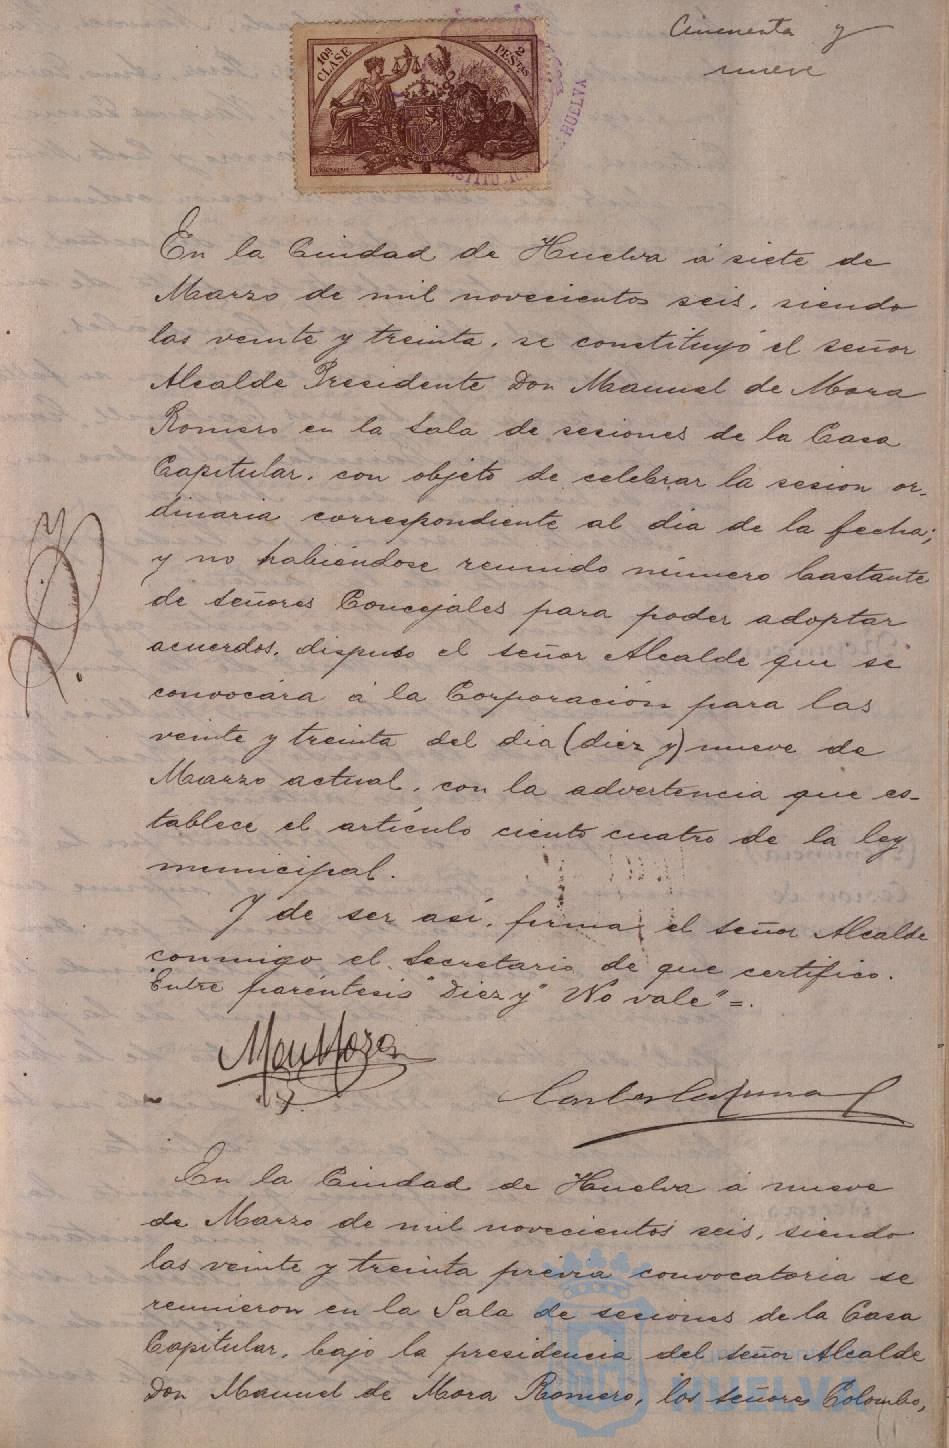 Cincuenta y
nueve
10ª CLASE
2 PESTAS
HUELVA
En la Ciudad de Huelva á siete de
Marzo de mil novecientos seis, siendo
las veinte y treinta, se constituyó el señor
Alcalde Presidente Don Manuel de Mora
Romero en la Sala de sesiones de la Casa
Capitular, con objeto de celebrar la sesion or-
dinaria correspondiente al dia de la fecha;
y no habiéndose reunido número bastante
de señores Concejales para poder adoptar
acuerdos, dispuso el señor Alcalde que se
convocára á la Corporación para las
veinte y treinta del dia (diez y) nueve de
Marzo actual, con la advertencia que es-
tablece el artículo ciento cuatro de la ley
municipal.
Y de ser así, firma el señor Alcalde
conmigo el Secretario de que certifico.
"Entre paréntesis" "Diez y" "No vale" =.
En la Ciudad de Huelva á nueve
de Marzo de mil novecientos seis, siendo
las veinte y treinta prévia convocatoria se
reunieron en la Sala de sesiones de la Casa
Capitular, bajo la presidencia del señor Alcalde
Don Manuel de Mora Romero, los señores Colombo,
HUELVA